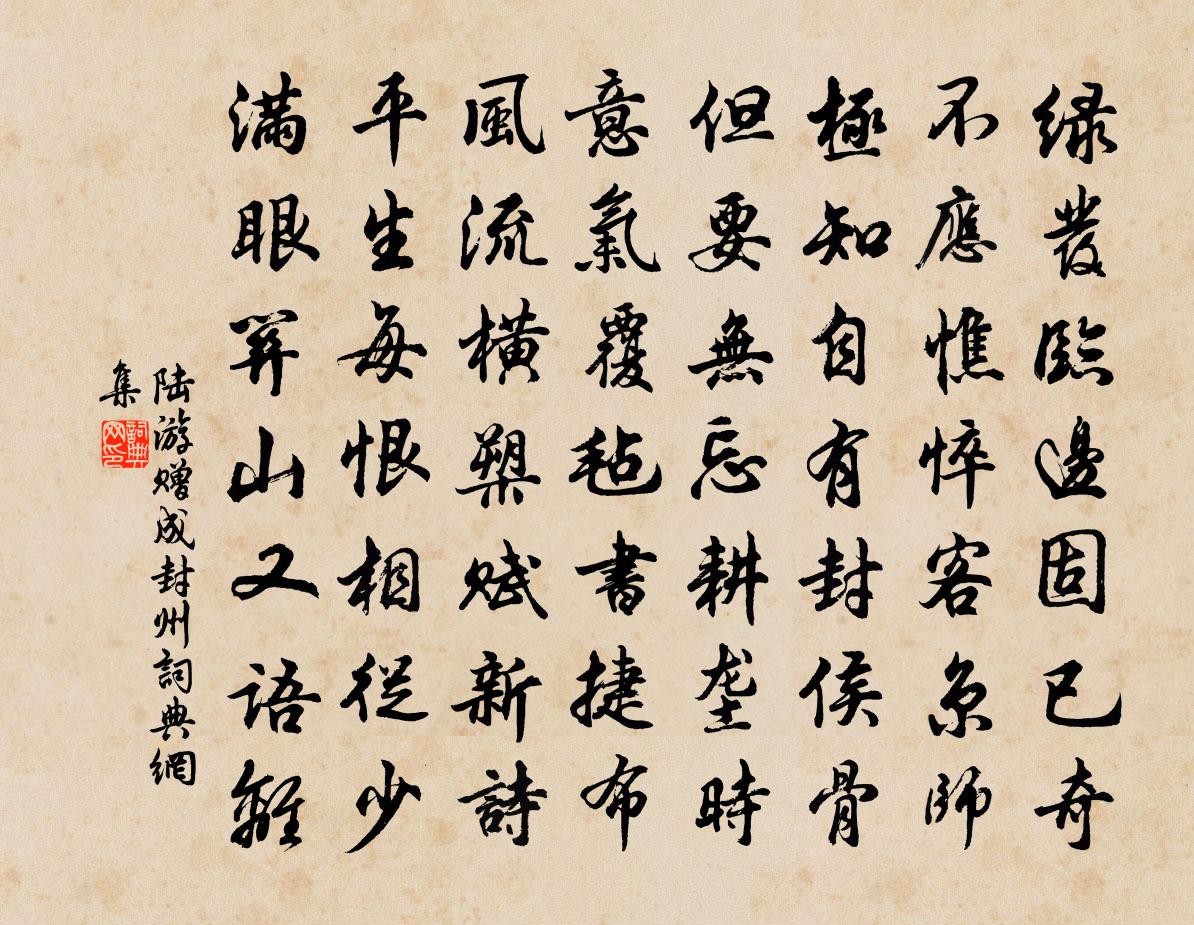 绿發臨邊固已奇
不應憔悴客京師
極知自有封侯骨
但要無忘耕垄時
意氣覆毡書捷布
風流橫槊賦新詩
平生每恨相從少
滿眼關山又語離
陸游赠成封州詞典網
集
詞典
网印